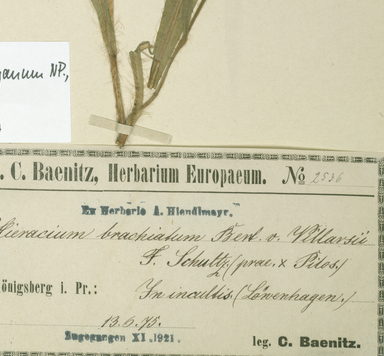 ganum NP.,
. C. Baenitz, Herbarium Europaeum. № 2536
Ex Herbario A. Hiendlmayr.
Hieracium brachiatum Bert. v. Villarsii
F. Schultz. (prae. x Pilos.)
Königsberg i. Pr.: In incultis. (Löwenhagen.)
13.6.75.
Zugegangen XI.1921. leg. C. Baenitz.